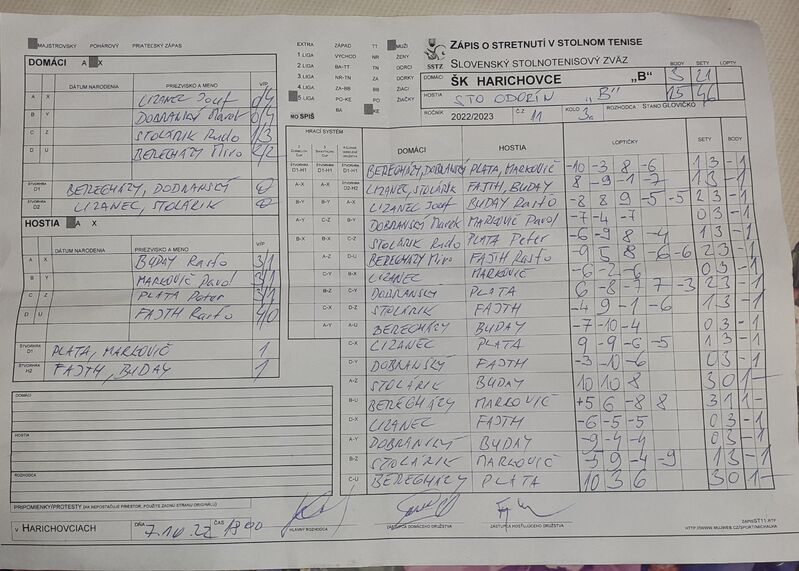 MAJSTROVSKY POHÁROVÝ PRIATEĽSKÝ ZÁPAS
DOMÁCI A X
DÁTUM NARODENIA PRIEZVISKO A MENO V/P
A X LIZANEC Jozef 0/4
B Y DOBRANSKÝ Marek 0/4
C Z STOLÁRIK Rudo 1/3
D U BEREGHÁZY Miro 2/2
ŠTVORHRA D1 BEREGHÁZY, DOBRANSKÝ 0
ŠTVORHRA D2 LIZANEC, STOLÁRIK 0
HOSTIA A X
DÁTUM NARODENIA PRIEZVISKO A MENO V/P
A X BUDAY Rasťo 3/1
B Y MARKOVIČ Pavol 3/1
C Z PLATA Peter 3/1
D U FAJTH Rasťo 4/0
ŠTVORHRA D1 PLATA, MARKOVIČ 1
ŠTVORHRA H2 FAJTH, BUDAY 1
DOMÁCI
HOSTIA
ROZHODCA
PRIPOMIENKY/PROTESTY (AK NEPOSTAČUJE PRIESTOR, POUŽITE ZADNÚ STRANU ORIGINÁLU)
V HARICHOVCIACH DŇA 7.10.22 ČAS
EXTRA ZÁPAD TT MUŽI
1 LIGA VÝCHOD NR ŽENY
2 LIGA BA-TT TN DORCI
3 LIGA NR-TN ZA DORKY
4 LIGA ZA-BB BB ŽIACI
5 LIGA PO-KE PO ŽIAČKY
BA KE
MO SPIŠ
SSTZ
ZÁPIS O STRETNUTÍ V STOLNOM TENISE
SLOVENSKÝ STOLNOTENISOVÝ ZVÄZ
BODY SETY LOPTY
DOMÁCI ŠK HARICHOVCE „B" 3 21
HOSTIA STO ODORÍN „B" 15 46
ROČNÍK 2022/2023 Č.Z. 11 KOLO 3. ROZHODCA: ŠTANO GLOVIČKO
HRACÍ SYSTÉM
DOMÁCI HOSTIA LOPTIČKY SETY BODY
D1-H1 D1-H1 D1-H1 BEREGHÁZY, DOBRANSKÝ PLATA, MARKOVIČ -10 -3 8 -6 1 3 - 1
A-X A-X D2-H2 LIZANEC, STOLÁRIK FAJTH, BUDAY 8 -9 -1 -7 1 3 - 1
B-Y B-Y A-X LIZANEC Jozef BUDAY Rasťo -8 8 9 -5 -5 2 3 - 1
A-Y C-Z B-Y DOBRANSKÝ Marek MARKOVIČ Pavol -7 -4 -7 0 3 - 1
B-X B-X C-Z STOLÁRIK Rudo PLATA Peter -6 -9 8 -4 1 3 - 1
A-Z D-U BEREGHÁZY Miro FAJTH Rasťo -9 5 8 -6 -6 2 3 - 1
C-Y B-X LIZANEC MARKOVIČ -6 -2 -6 0 3 - 1
B-Z C-Y DOBRANSKÝ PLATA 6 -8 -7 7 -3 2 3 - 1
C-X D-Z STOLÁRIK FAJTH -4 9 -1 -6 1 3 - 1
A-Y A-U BEREGHÁZY BUDAY -7 -10 -4 0 3 - 1
C-X LIZANEC PLATA 9 -9 -6 -5 1 3 - 1
D-Y DOBRANSKÝ FAJTH -3 -10 -6 0 3 - 1
A-Z STOLÁRIK BUDAY 10 10 8 3 0 1 -
B-U BEREGHÁZY MARKOVIČ +5 6 -8 8 3 1 1 -
D-X LIZANEC FAJTH -6 -5 -5 0 3 - 1
A-Y DOBRANSKÝ BUDAY -9 -4 -4 0 3 - 1
B-Z STOLÁRIK MARKOVIČ -5 9 -4 -9 1 3 - 1
C-U BEREGHÁZY PLATA 10 3 6 3 0 1 -
HLAVNÝ ROZHODCA ZÁSTUPCA DOMÁCEHO DRUŽSTVA ZÁSTUPCA HOSŤUJÚCEHO DRUŽSTVA
ZÁPISST11.RTF
HTTP://WWW.MUJWEB.CZ/SPORT/MICHALKA